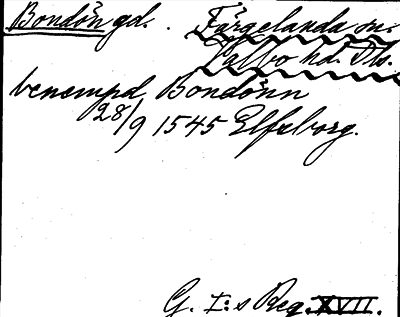 Bondön gd. . Färgelanda sn.
Valbo hd. Dls.
benempd Bondönn
28/9 1545 Elfsborg.
G. I:s Reg. XVII.